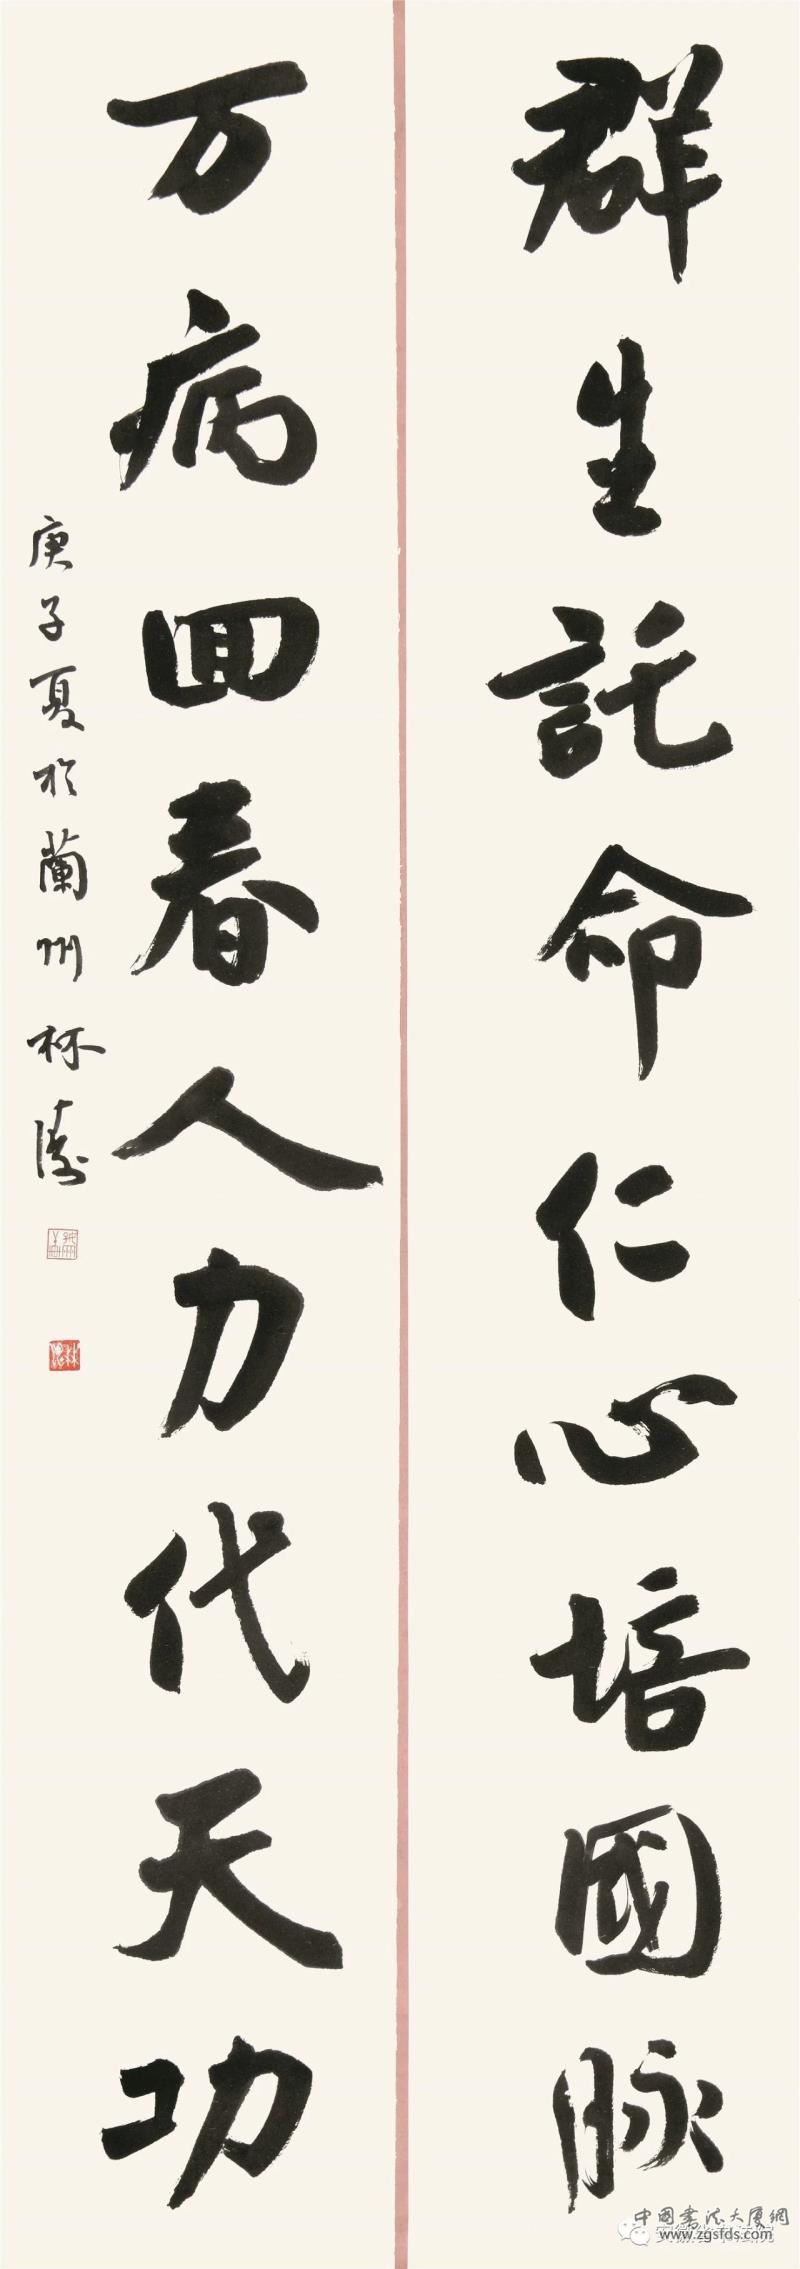 群生託命仁心培國脉
万病回春人力代天功
庚子夏於蘭州林濤
中國書法大厦網
www.zgsfds.com
安徽省书法院